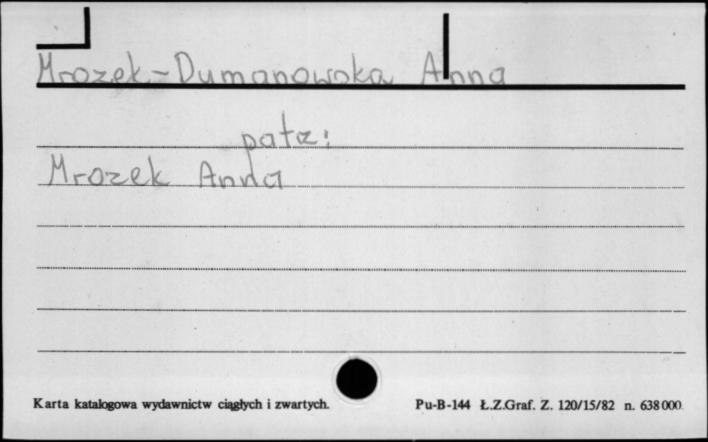 Mrozek-Dumanowska Anna
patrz:
Mrozek Anna
Karta katalogowa wydawnictw ciągłych i zwartych.
Pu-B-144 Ł.Z.Graf. Z. 120/15/82 n. 638000